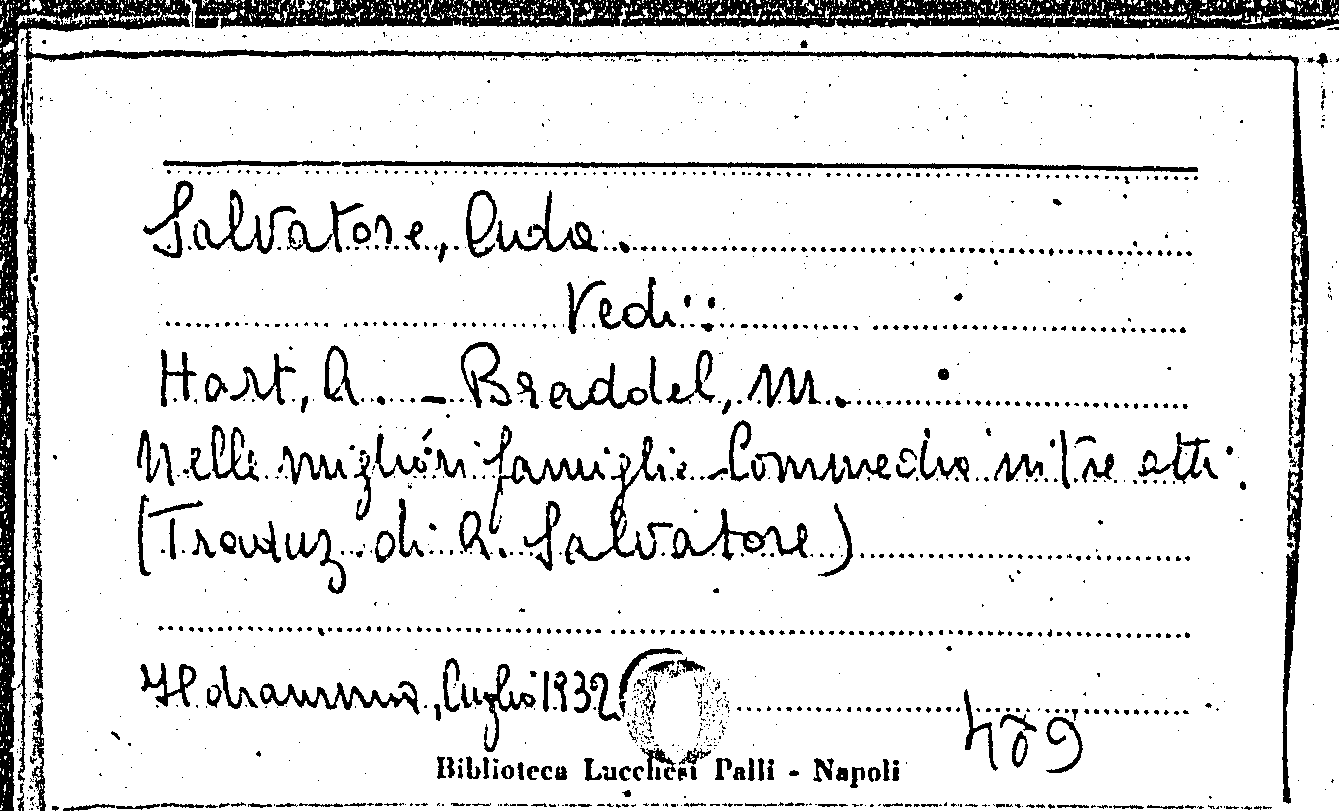 Salvatore,
Vedi:
Hart, A. - Braddel, M.
Nelle migliori famiglie - Commedia in tre atti.
(Traduz. di A. Salvatore)
Il dramma, luglio 1932
489
Biblioteca Lucchesi Palli - Napoli